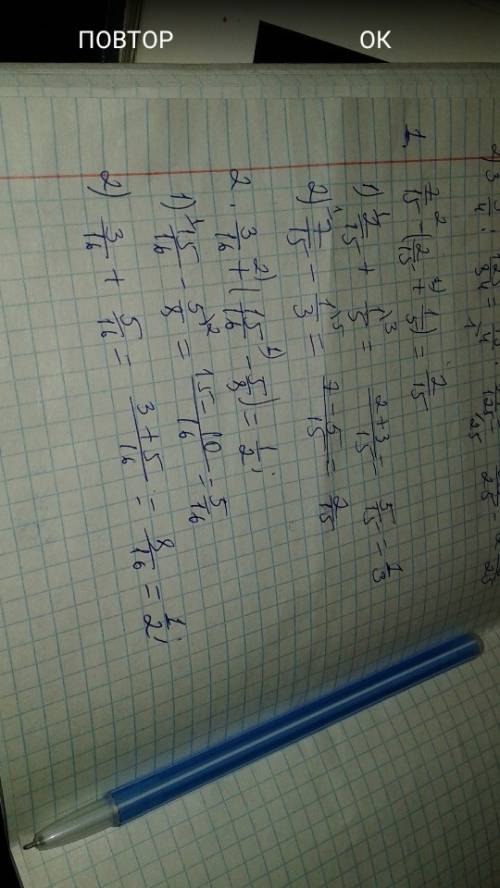 ПОВТОР ОК
1. 7/15 -²⁾ (2/15 +¹⁾ 1/5) = 2/15
1) 2/15 + 1/5 = (2+3)/15 = 5/15 = 1/3
2) 7/15 - 1/3 = (7-5)/15 = 2/15
2. 3/16 +²⁾ (15/16 -¹⁾ 5/8) = 1/2;
1) 15/16 - 5/8 = (15-10)/16 = 5/16
2) 3/16 + 5/16 = (3+5)/16 = 8/16 = 1/2;